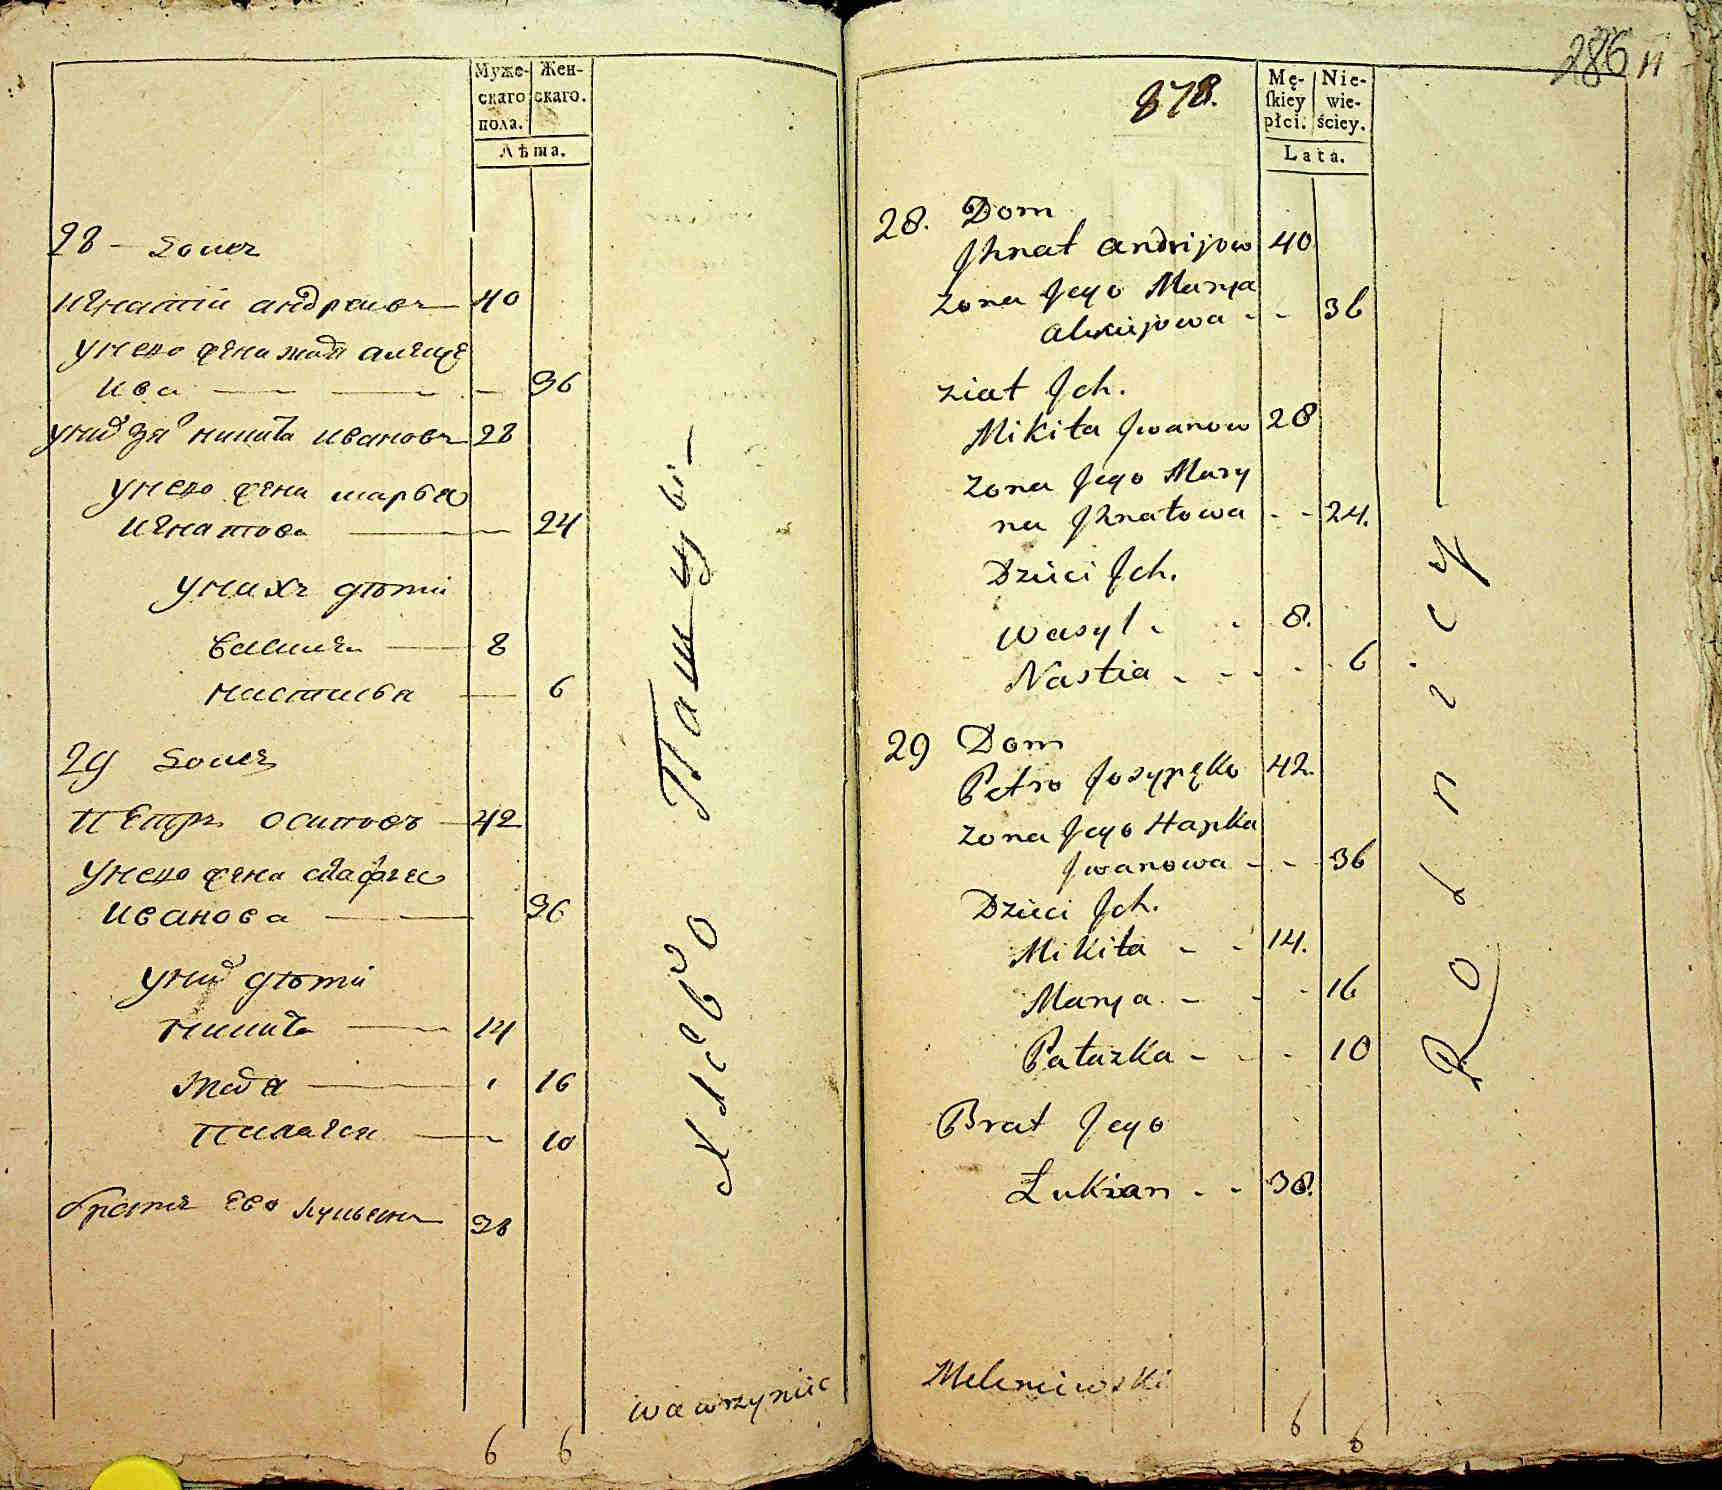 Муже-
скаго
пола.
Жен-
скаго.
Лѣта.
28 - Домъ
Игнатій андреевъ 40
Унего жена
36
Никита Ивановъ 28
Унего жена марья
Игнатова 24
Унихъ дѣти
Василей 8
Настасья 6
29 Домъ
Петръ осиповъ 42
Унего жена агафья
Иванова 36
Уних дѣти
Никита 14
16
Палагея 10
братъ Ево лукьянъ 38
6 6
Хлебо Пашцы
wawrzyniec
286
878.
Mę-
ſkiey
płci.
Nie-
wie-
ściey.
Lata.
28. Dom
Jhnat Andrijow 40
żona Jego Marya
Alexiejowa - - 36
ziat Jch.
Mikita Jwanow 28
żona Jego Mary
na Jhnatowa - - 24.
Dzieci Jch.
Wasyl - - 8.
Nastia - - - - 6
29 Dom
Petro Josypęko 42.
żona Jego Hapka
Jwanowa - - 36
Dzieci Jch.
Mikita - - 14.
Marya - - - 16
Pałazka - - - 10
Brat Jego
Łukian - - 38.
Meleniewski
6 6
Rolnicy